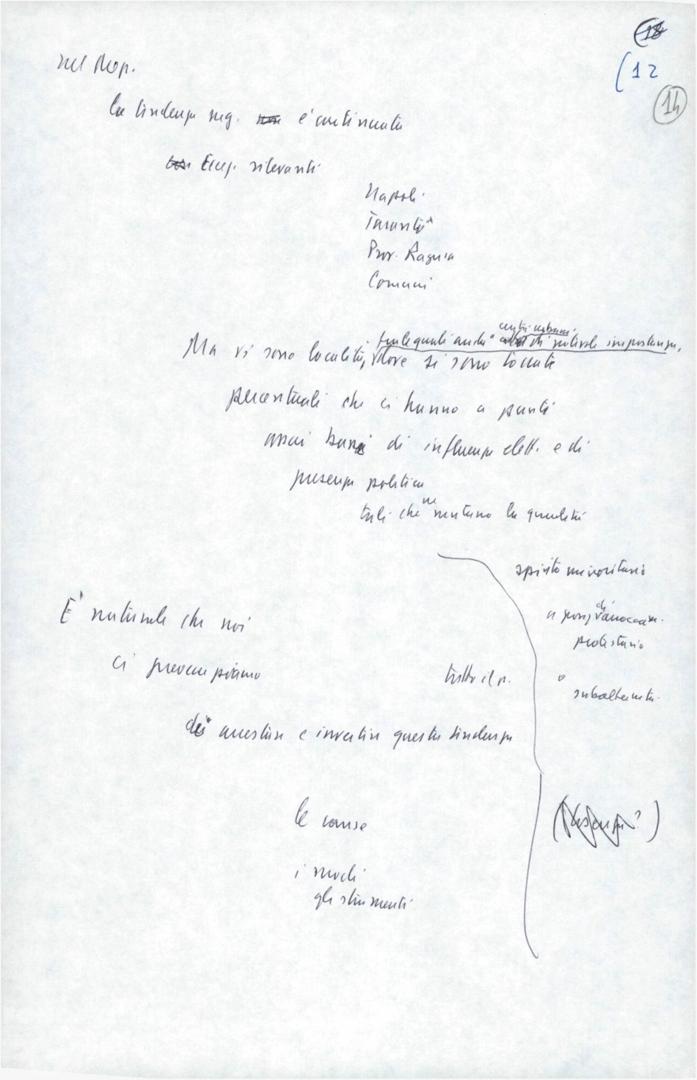 (12
14
nel Mezz.
La tendenza neg. è continuata
Ecc. rilevanti
Napoli
Taranto
Prov. Ragusa
Comuni
tra le quali anche centri urbani di notevole importanza,
Ma vi sono località, dove si sono toccate
percentuali che ci hanno a punti
assai bassi di influenza elett. e di
presenza politica
tali che ne mutano la qualità
spirito minoritario
a posiz. di
protestario
o subalternità
È naturale che noi
ci preoccupiamo
tutto il p.
di arrestare e invertire questa tendenza
le cause
i modi
gli strumenti